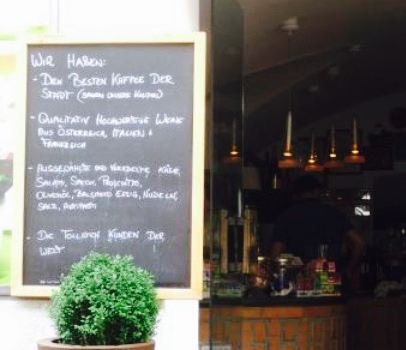 WIR HABEN:
- DEN BESTEN KAFFEE DER
STADT (SAGEN UNSERE KUNDEN)
- QUALITATIV HOCHWERTIGE WEINE
AUS ÖSTERREICH, ITALIEN +
FRANKREICH
- AUSGEWÄHLTE UND VEREDELTE KÄSE,
SALAMI, SPECK, PROSCIUTTO,
OLIVENÖL, BALSAMICO ESSIG, NUDELN,
SALZ,
- DIE TOLLSTEN KUNDEN DER
WELT